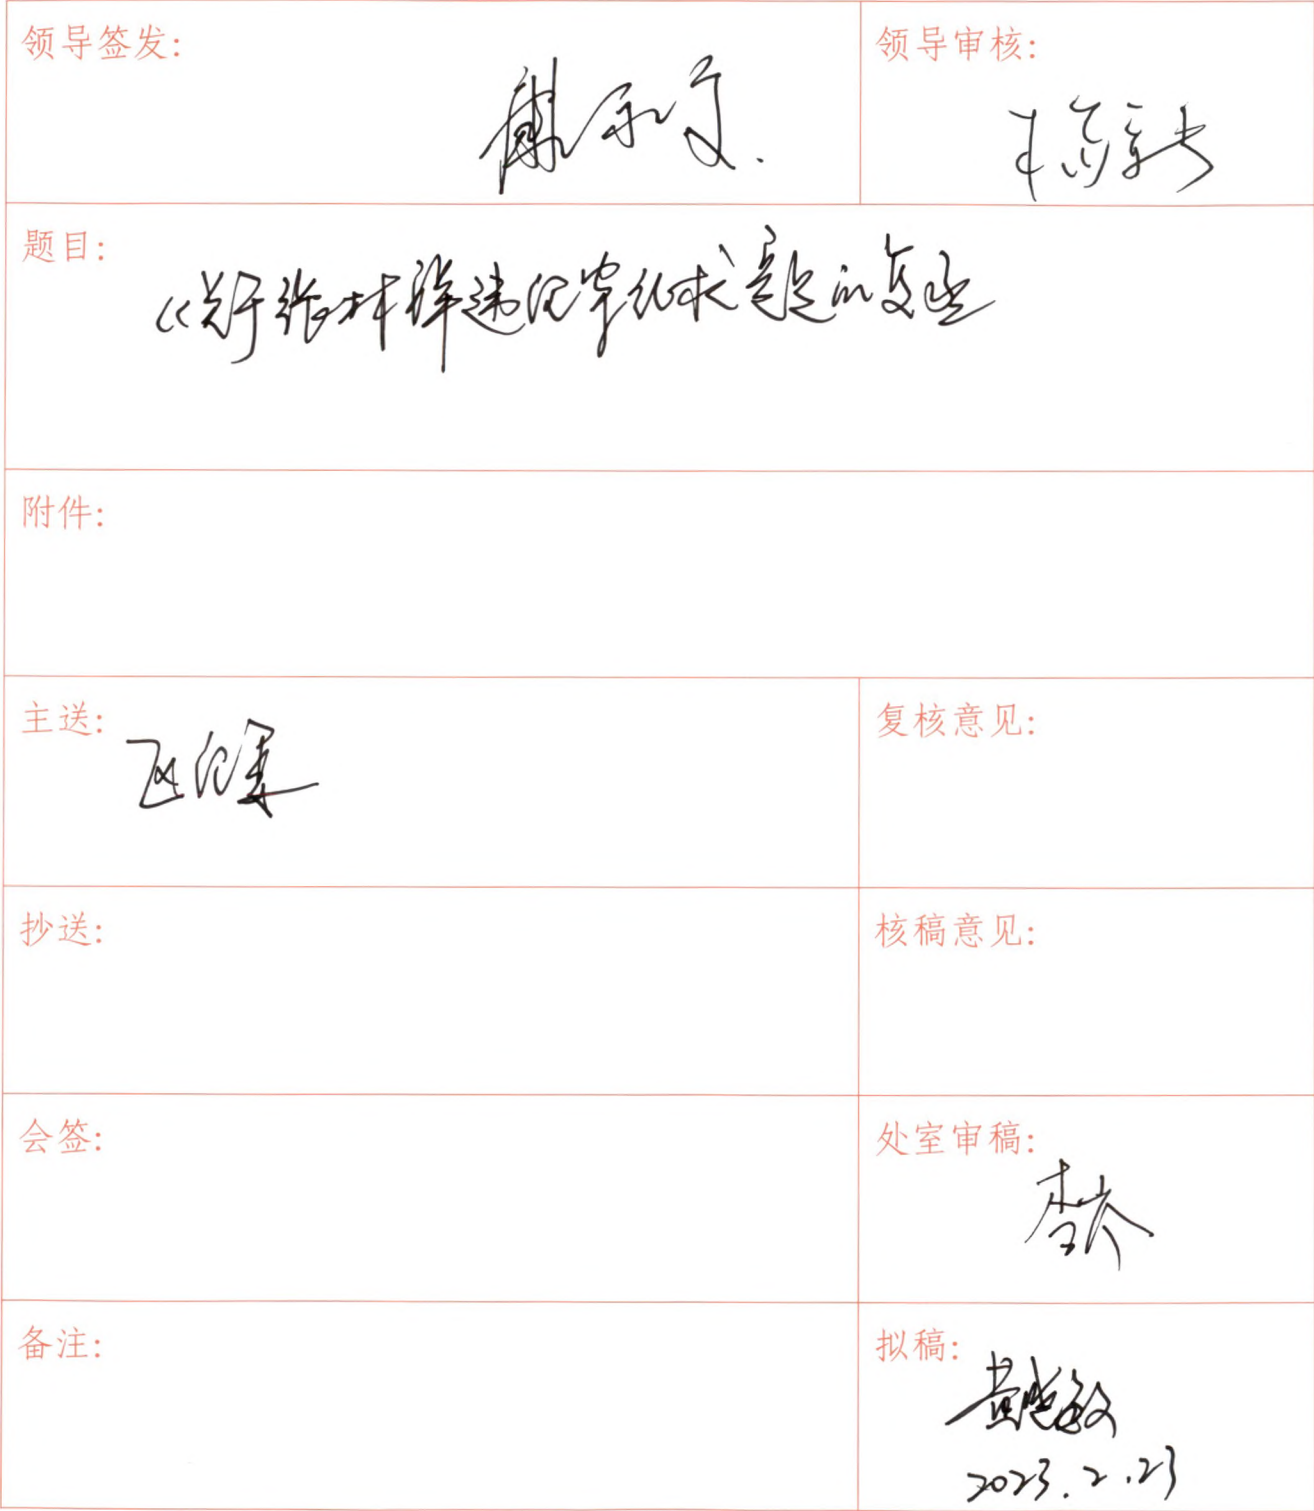 领导签发:
领导审核:
题目:
《关于张林祥违纪案征求意见的复函
附件:
主送:
区纪委
复核意见:
抄送:
核稿意见:
会签:
处室审稿:
备注:
拟稿:
2023.2.23